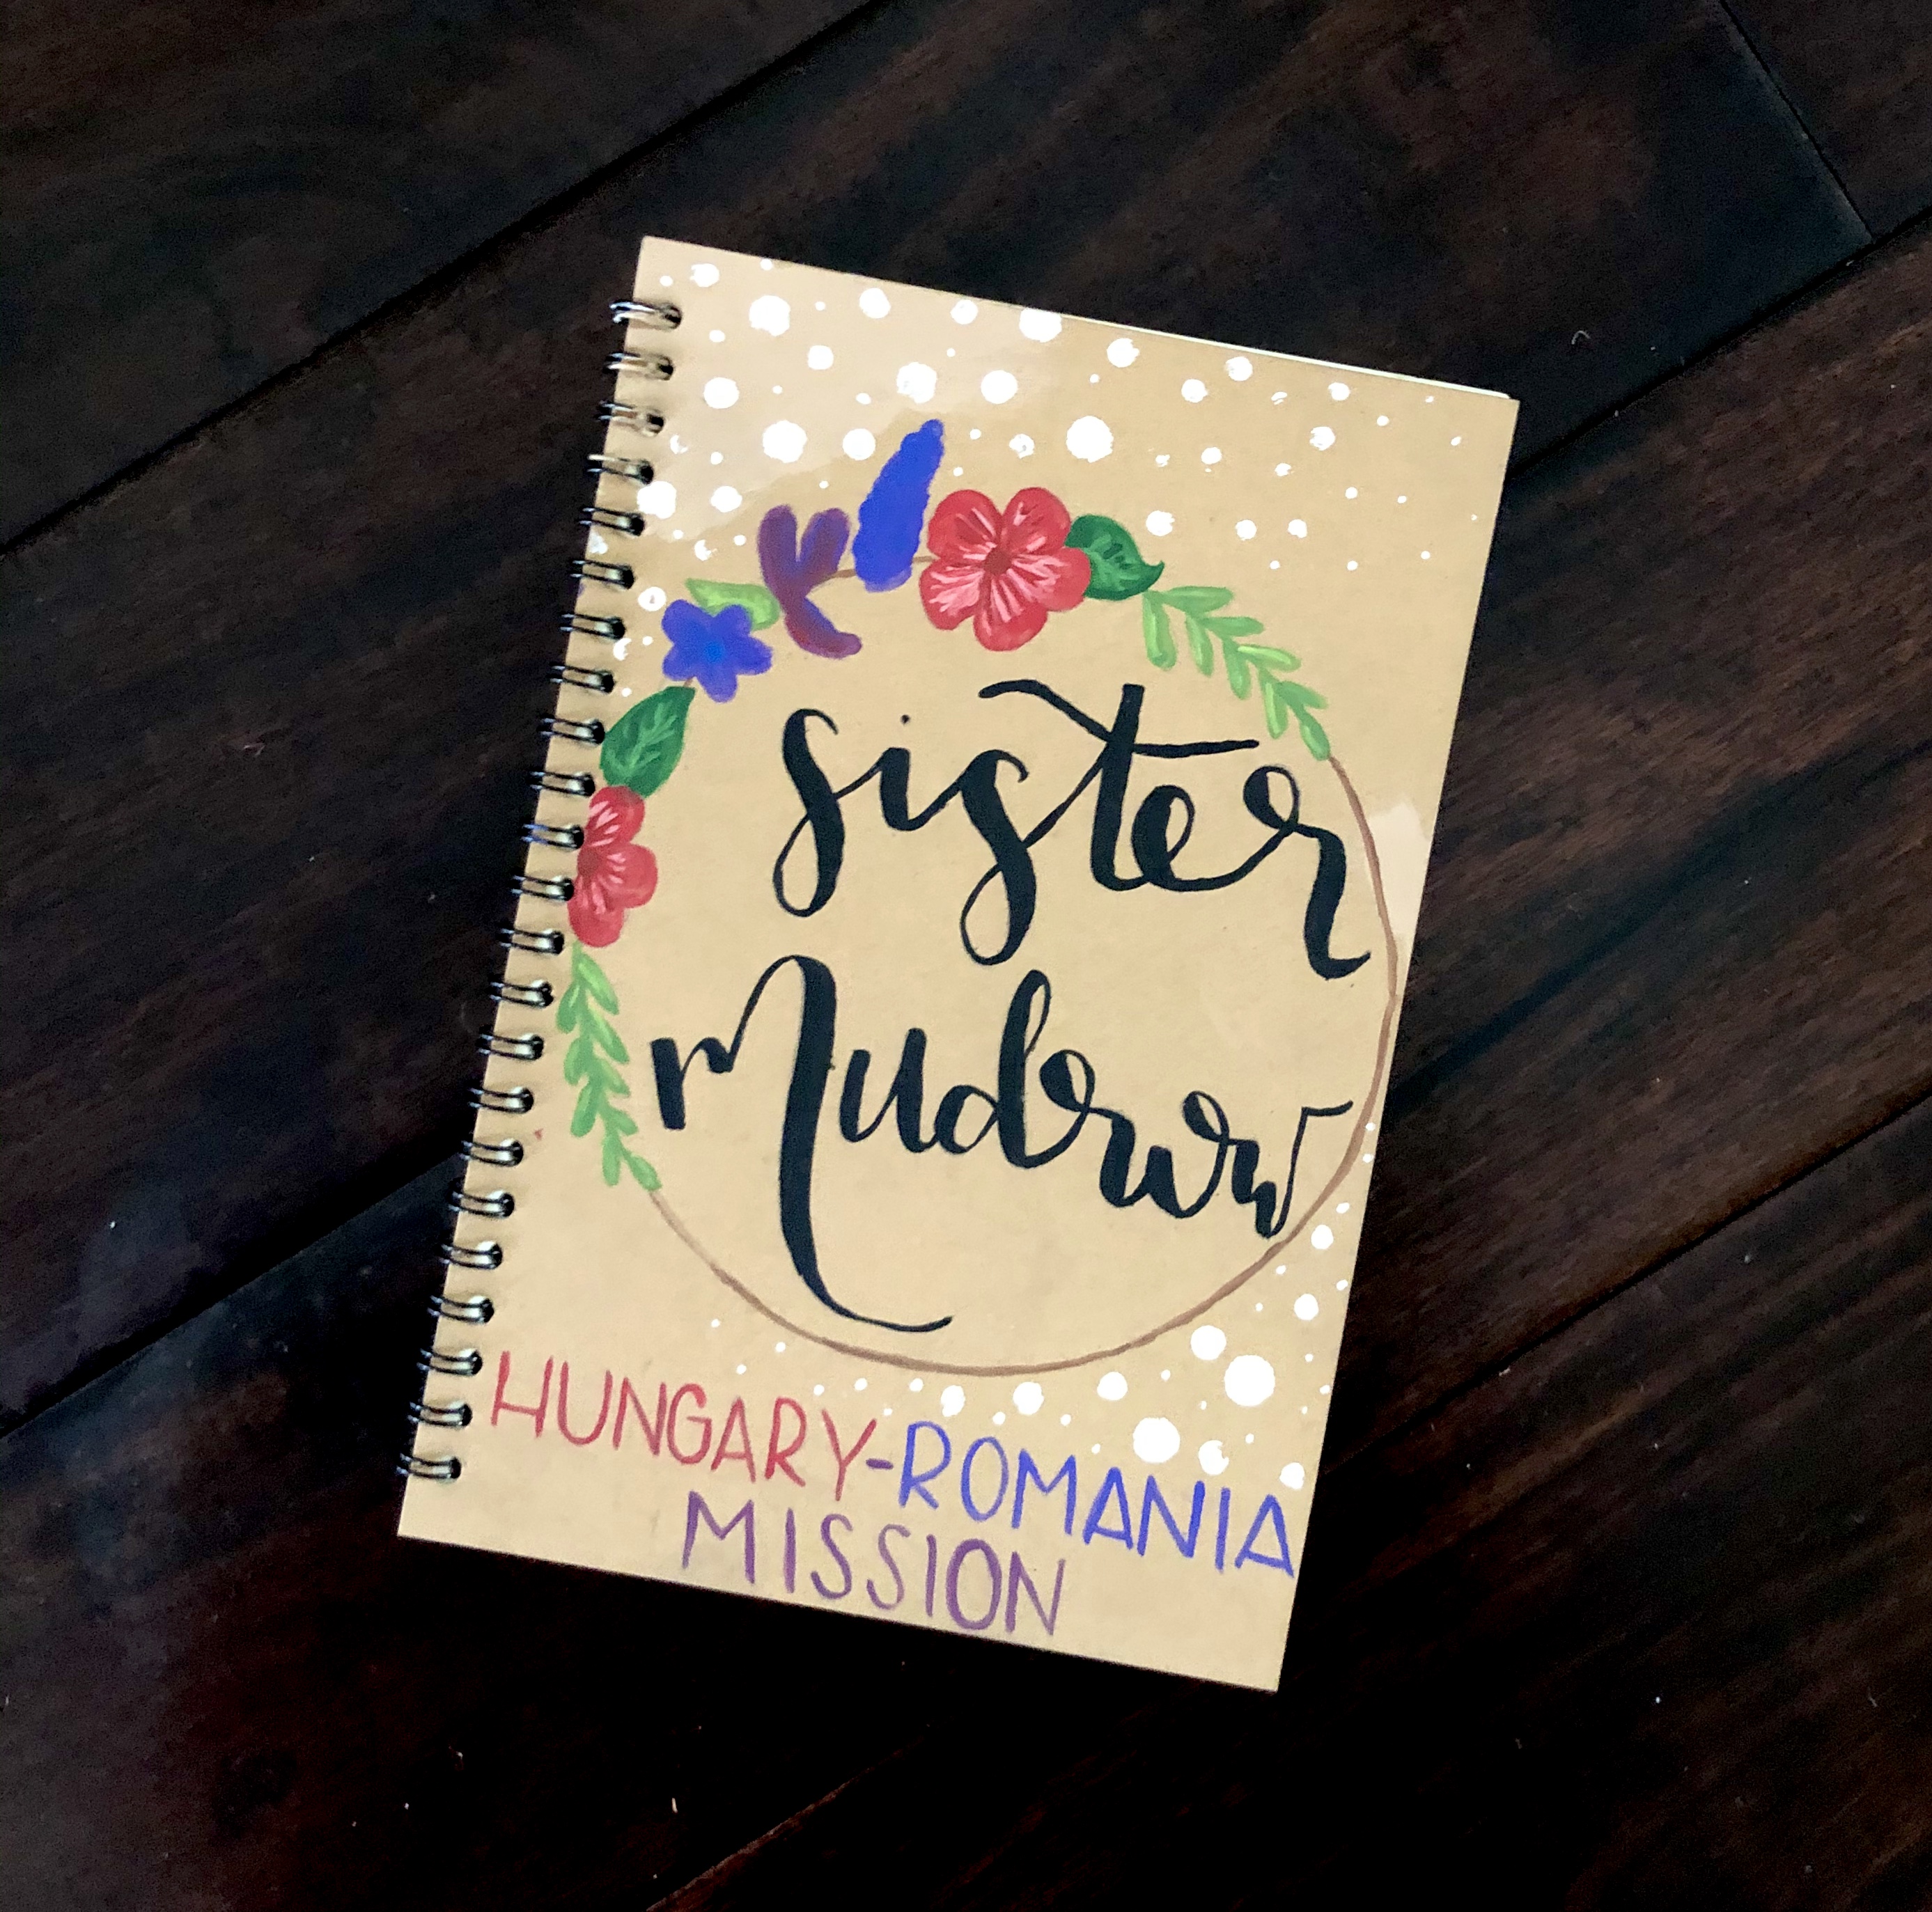 sister
HUNGARY-ROMANIA
MISSION